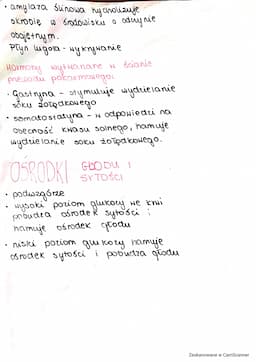 • amylaza ślinowa hydrolizuje
skrobię w środowisku o odczynie
obojętnym.
Płyn lugola - wykrywanie
Hormony wytwarzane w ścianie
przewodu pokarmowego:
• Gastryna - stymuluje wydzielanie
soku żołądkowego
• somatostatyna - w odpowiedzi na
obecność kwasu solnego, hamuje
wydzielanie soku żołądkowego.
OŚRODKI GŁODU I
SYTOŚCI
• podwzgórze
• wysoki poziom glukozy we krwi
pobudza ośrodek sytości i
hamuje ośrodek głodu
• niski poziom glukozy hamuje
ośrodek sytości i pobudza głodu
Zeskanowane w CamScanner